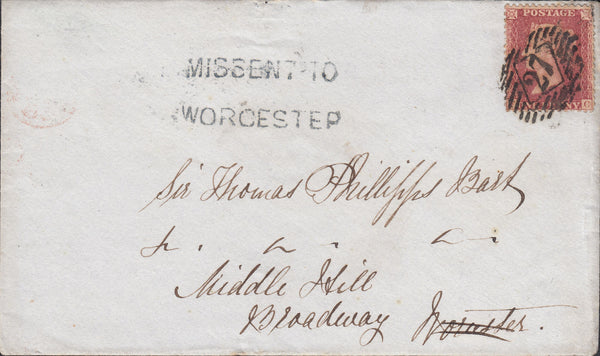 POSTAGE
27
MISSENT TO
WORCESTER
Sir Thomas Phillipps Bart
Middle Hill
Broadway Worcester.